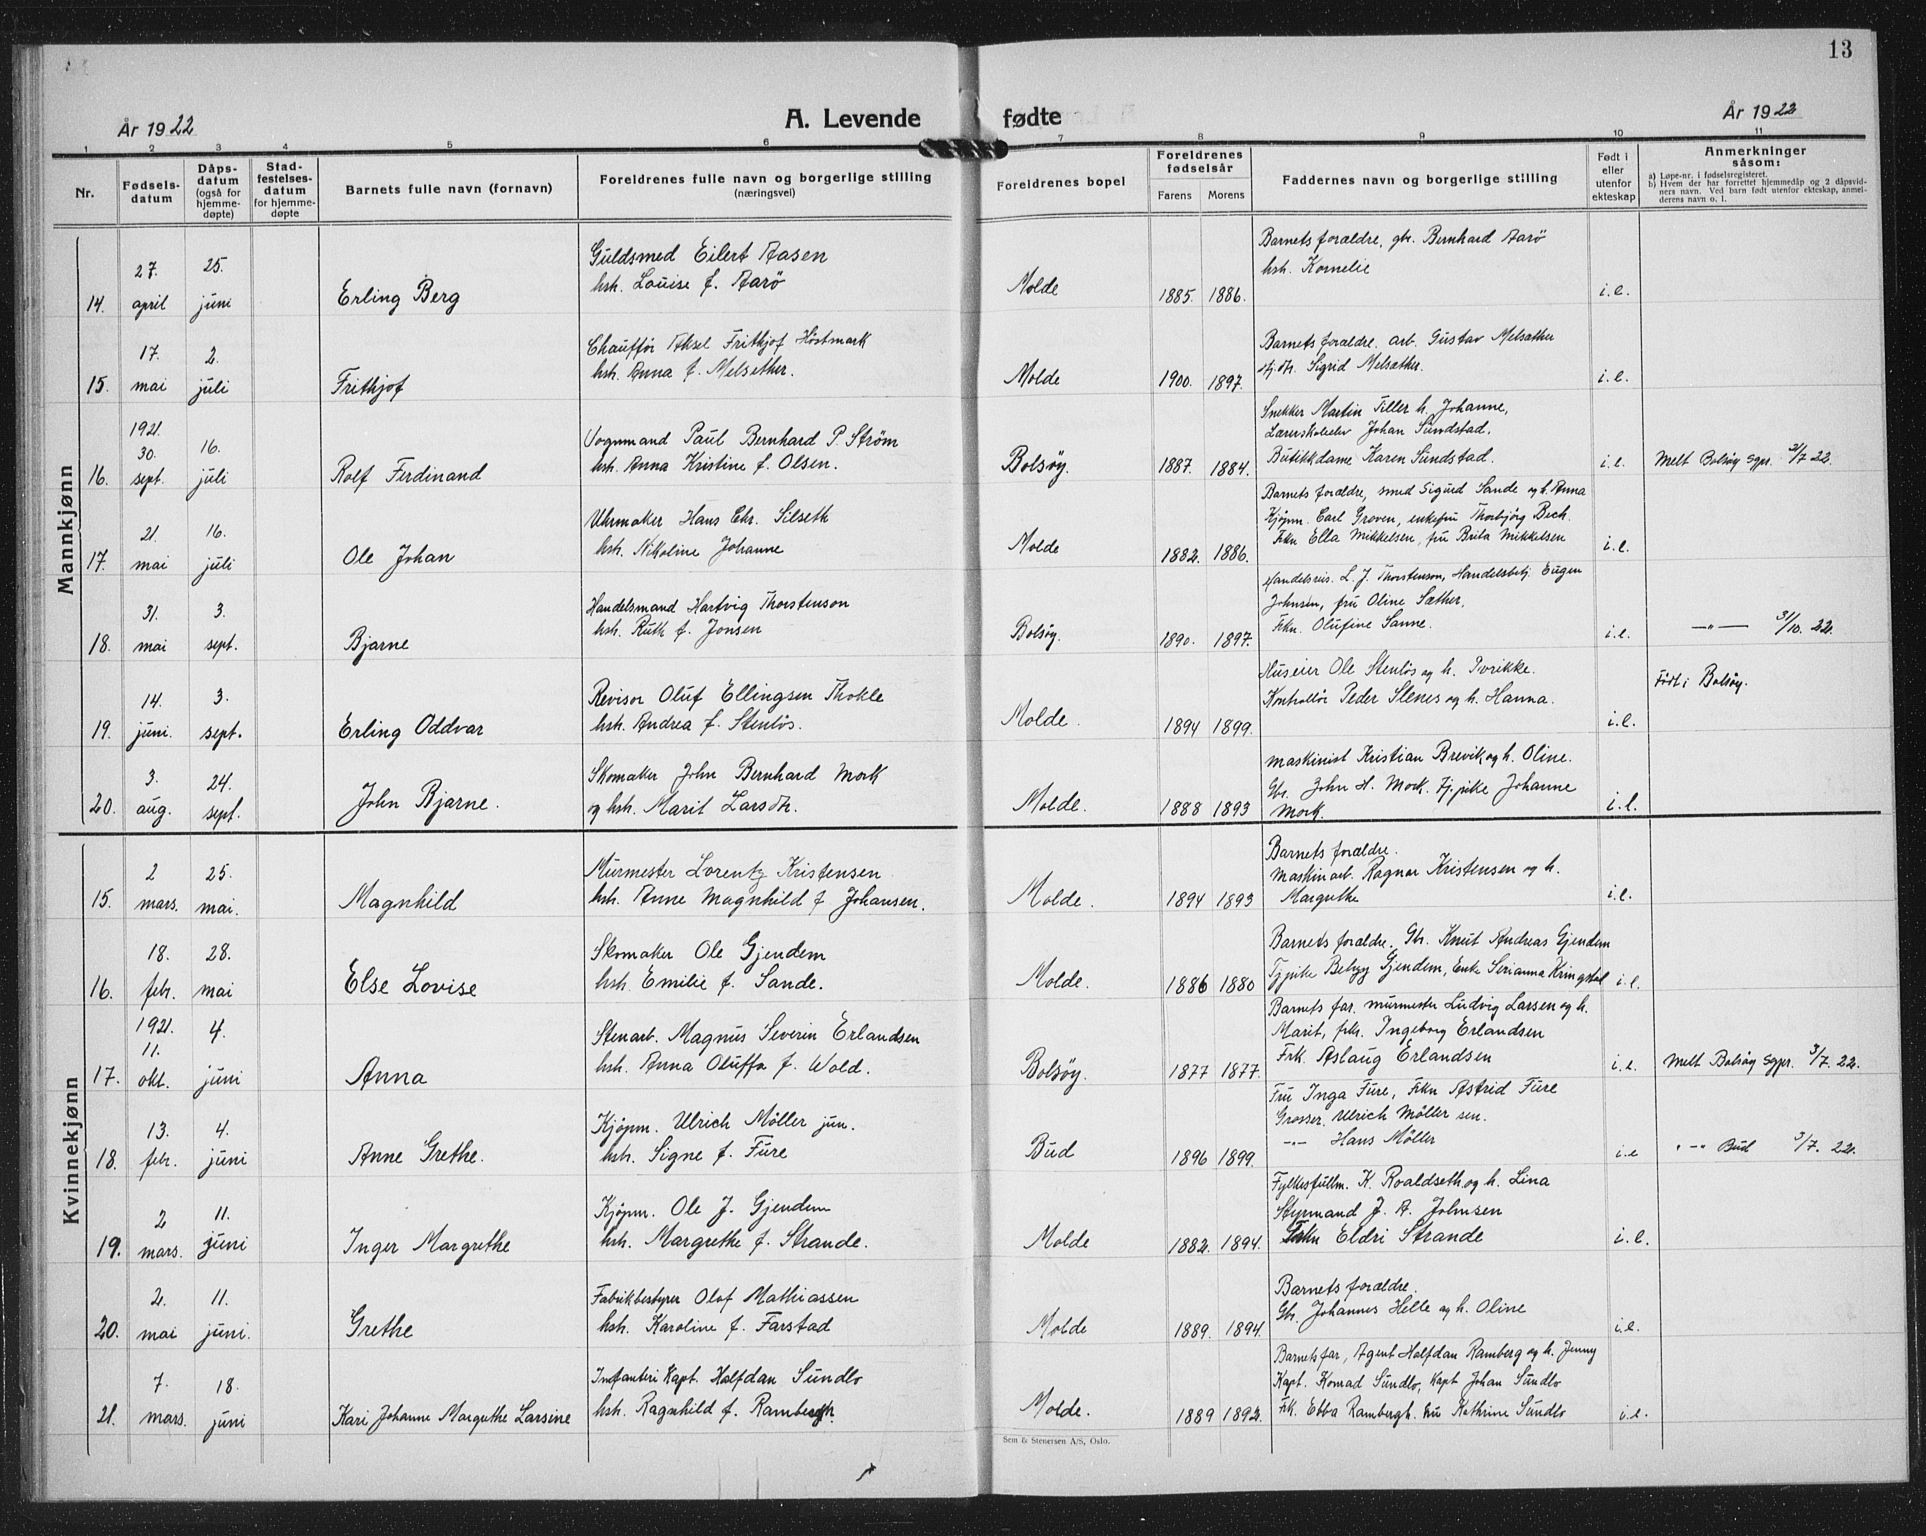 13
År 1922
A. Levende fødte
År 1922
1 2 3 4 5 6 7 8 9 10 11
Nr.
Fødsels-
datum
Dåps-
datum
(også for
hjemme-
døpte)
Stad-
festelses-
datum
for hjemme-
døpte
Barnets fulle navn (fornavn)
Foreldrenes fulle navn og borgerlige stilling
(næringsvei)
Foreldrenes bopel
Foreldrenes
fødselsår
Farens Morens
Faddernes navn og borgerlige stilling
Født i
eller
utenfor
ekteskap
Anmerkninger
såsom:
a) Løpe-nr. i fødselsregisteret.
b) Hvem der har forrettet hjemmedåp og 2 dåpsvid-
ners navn. Ved barn født utenfor ekteskap, anmel-
derens navn o. l.
Mannkjønn
14. 27. april 25. juni Erling Berg
Guldsmed Eilert Aasen
hsh. Louise f. Aarö
Molde 1885. 1886.
Barnets forældre, gbr. Bernhard Aarö
hsh. Kornelie
i.e.
15. 17. mai 2. juli Frithjof
Chaufför Aksel Frithjof Höstmark
hsh. Anna f. Melsether.
Molde 1900. 1897.
Barnets forældre, arb. Gustav Melsæther
Sigrid Melsæther.
i.e.
16. 1921. 30. sept. 16. juli Rolf Ferdinand
Vognmand Paul Bernhard P. Ström
hsh. Anna Kristine f. Olsen.
Bolsöy. 1887. 1884.
Snekker Martin Tiller h. Johanne,
Lærerskoleelev Johan Sundstad.
Butikkdame Karen Sundstad.
i.e. Melt Bolsöy Sgpr. 31/7 22.
17. 21. mai 16. juli Ole Johan
Uhrmaker Hans Chr. Silseth
hsh. Nikoline Johanne
Molde 1882. 1886.
Barnets forældre, smed Sigurd Sande og h. Anna
Kjöpm. Carl Groven, enkefru Thorbjörg Bech.
Frkn Ella Mikkelsen, fru Brita Mikkelsen
i.e.
18. 31. mai 3. sept. Bjarne
Handelsmand Hartvig Thorstenson
hsh. Ruth f. Jonsen
Bolsöy. 1890. 1897.
Handelsreis. L. J. Thorstenson, Handelsbetj. Eugen
Johnsen, fru Oline Sæther,
Frkn. Olufine Sanne.
i.e. —"— 31/10. 22.
19. 14. juni. 3. sept. Erling Oddvar
Revisor Oluf Ellingsen Thokle
hsh. Andrea f. Stenlös.
Molde. 1894 1899.
Huseier Ole Stenlös og h. Pvrikke.
Kontrollör Peder Slenes og h. Hanna.
i.e. Födt i Bolsöy.
20. 3. aug. 24. sept. John Bjarne.
Skomaker John Bernhard Mork
og hsh. Marit Larsdtr.
Molde. 1888 1893
Maskinist Kristian Brevik og h. Oline.
Gbr. John H. Mork. Tj.pike Johanne
Mork.
i.e.
Kvinnekjønn
15. 2 mars. 25. mai. Magnhild
Murmester Lorentz Kristensen
hsh. Anne Magnhild f Johansen.
Molde. 1894 1893
Barnets forældre.
Maskinarb. Ragnar Kristensen og h.
Margrethe
i.e.
16. 18. febr. 28. mai Else Lovise
Skomaker Ole Gjendem
hsh. Emilie f. Sande.
Molde. 1886 1880
Barnets forældre. Gbr. Knut Andreas Gjendem
Tjpike Betzy Gjendem, Enke Serianna Kringstad
i.e.
17. 1921. 11. okt. 4. juni Anna
Stenarb. Magnus Severin Erlandsen
hsh. Anna Oluffa f. Wold.
Bolsöy. 1877 1877.
Barnets far, murmester Ludvig Larsen og h.
Marit, frk. Ingeborg Erlandsen
Frk. Aslaug Erlandsen
i.e. Melt Bolsöy Sgpr. 3/7. 22.
18. 13. febr. 4. juni Anne Grethe.
Kjöpm. Ulrich Möller jun.
hsh. Signe f. Fure
Bud 1896 1899.
Fru Inga Fure, Frkn Astrid Fure
Grosser. Ulrich Möller sen.
—"— Hans Möller
i.e " —" Bud 3/7. 22.
19. 2 mars. 11. juni Inger Margrethe
Kjöpm. Ole J. Gjendem
hsh. Margrethe f. Strande.
Molde 1882. 1894.
Fylkesfullm. K. Roaldseth og h. Lina
Styrmand J. A. Johnsen
Frkn Eldri Strande
i.e.
20. 2. mai 11. juni. Grethe
Fabrikbestyrer Olaf Mathiassen
hsh. Karoline f. Farstad
Molde 1889. 1894.
Barnets forældre.
Gbr. Johannes Helle og h. Oline
i.e.
21. 7. mars. 18. juni Kari Johanne Margrethe Larsine
Infanteri Kapt. Halfdan Sundlo
hsh. Ragnhild f. Rambergh.
Molde. 1889 1892.
Barnets far, Agent Halfdan Ramberg og h. Jenny
Kapt. Konrad Sundlo, Kapt Johan Sundlo
Frk. Ebba Rambergh. Fru Kathrine Sundlo
i.e.
Sem & Stenersen A/S, Oslo.